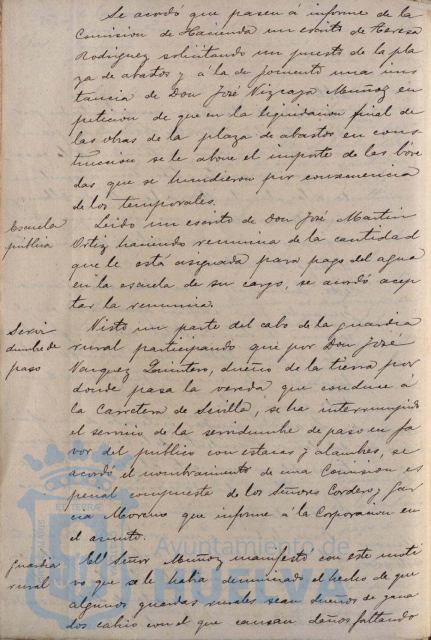 Se acordó que pasen á informe de la
Comision de Hacienda un escrito de Teresa
Rodriguez solicitando un puesto de la pla
za de abastos y á la de fomento una ins
tancia de Don José Muñoz en
peticion de que en la liquidacion final de
las obras de la plaza de abastos en cons
truccion se le abone el importe de las bóve
das que se hundieron por consecuencia
de los temporales.
Escuela
pública
Leido un escrito de Don José Martin
Ortiz haciendo renuncia de la cantidad
que le está asignada para pago del agua
en la escuela de su cargo, se acordó acep
tar la renuncia.
Servi
dumbre de
paso
Visto un parte del cabo de la guardia
rural participando que por Don José
Vazquez Quintero, dueño de la tierra por
donde pasa la vereda que conduce á
la Carretera de Sevilla, se ha interrumpido
el servicio de la servidumbre de paso en fa
vor del público con estacas y alambres, se
acordó el nombramiento de una Comision es
pecial compuesta de los Señores Cordero, Gar
cia Moreno que informe á la Corporacion en
el asunto.
Guardia
rural
El Señor Muñoz manifestó con este moti
vo que se le habia denunciado el hecho de que
algunos guardas rurales sean dueños de gana
dos cabrio con el que causan daños faltando
Ayuntamiento de
HUELVA